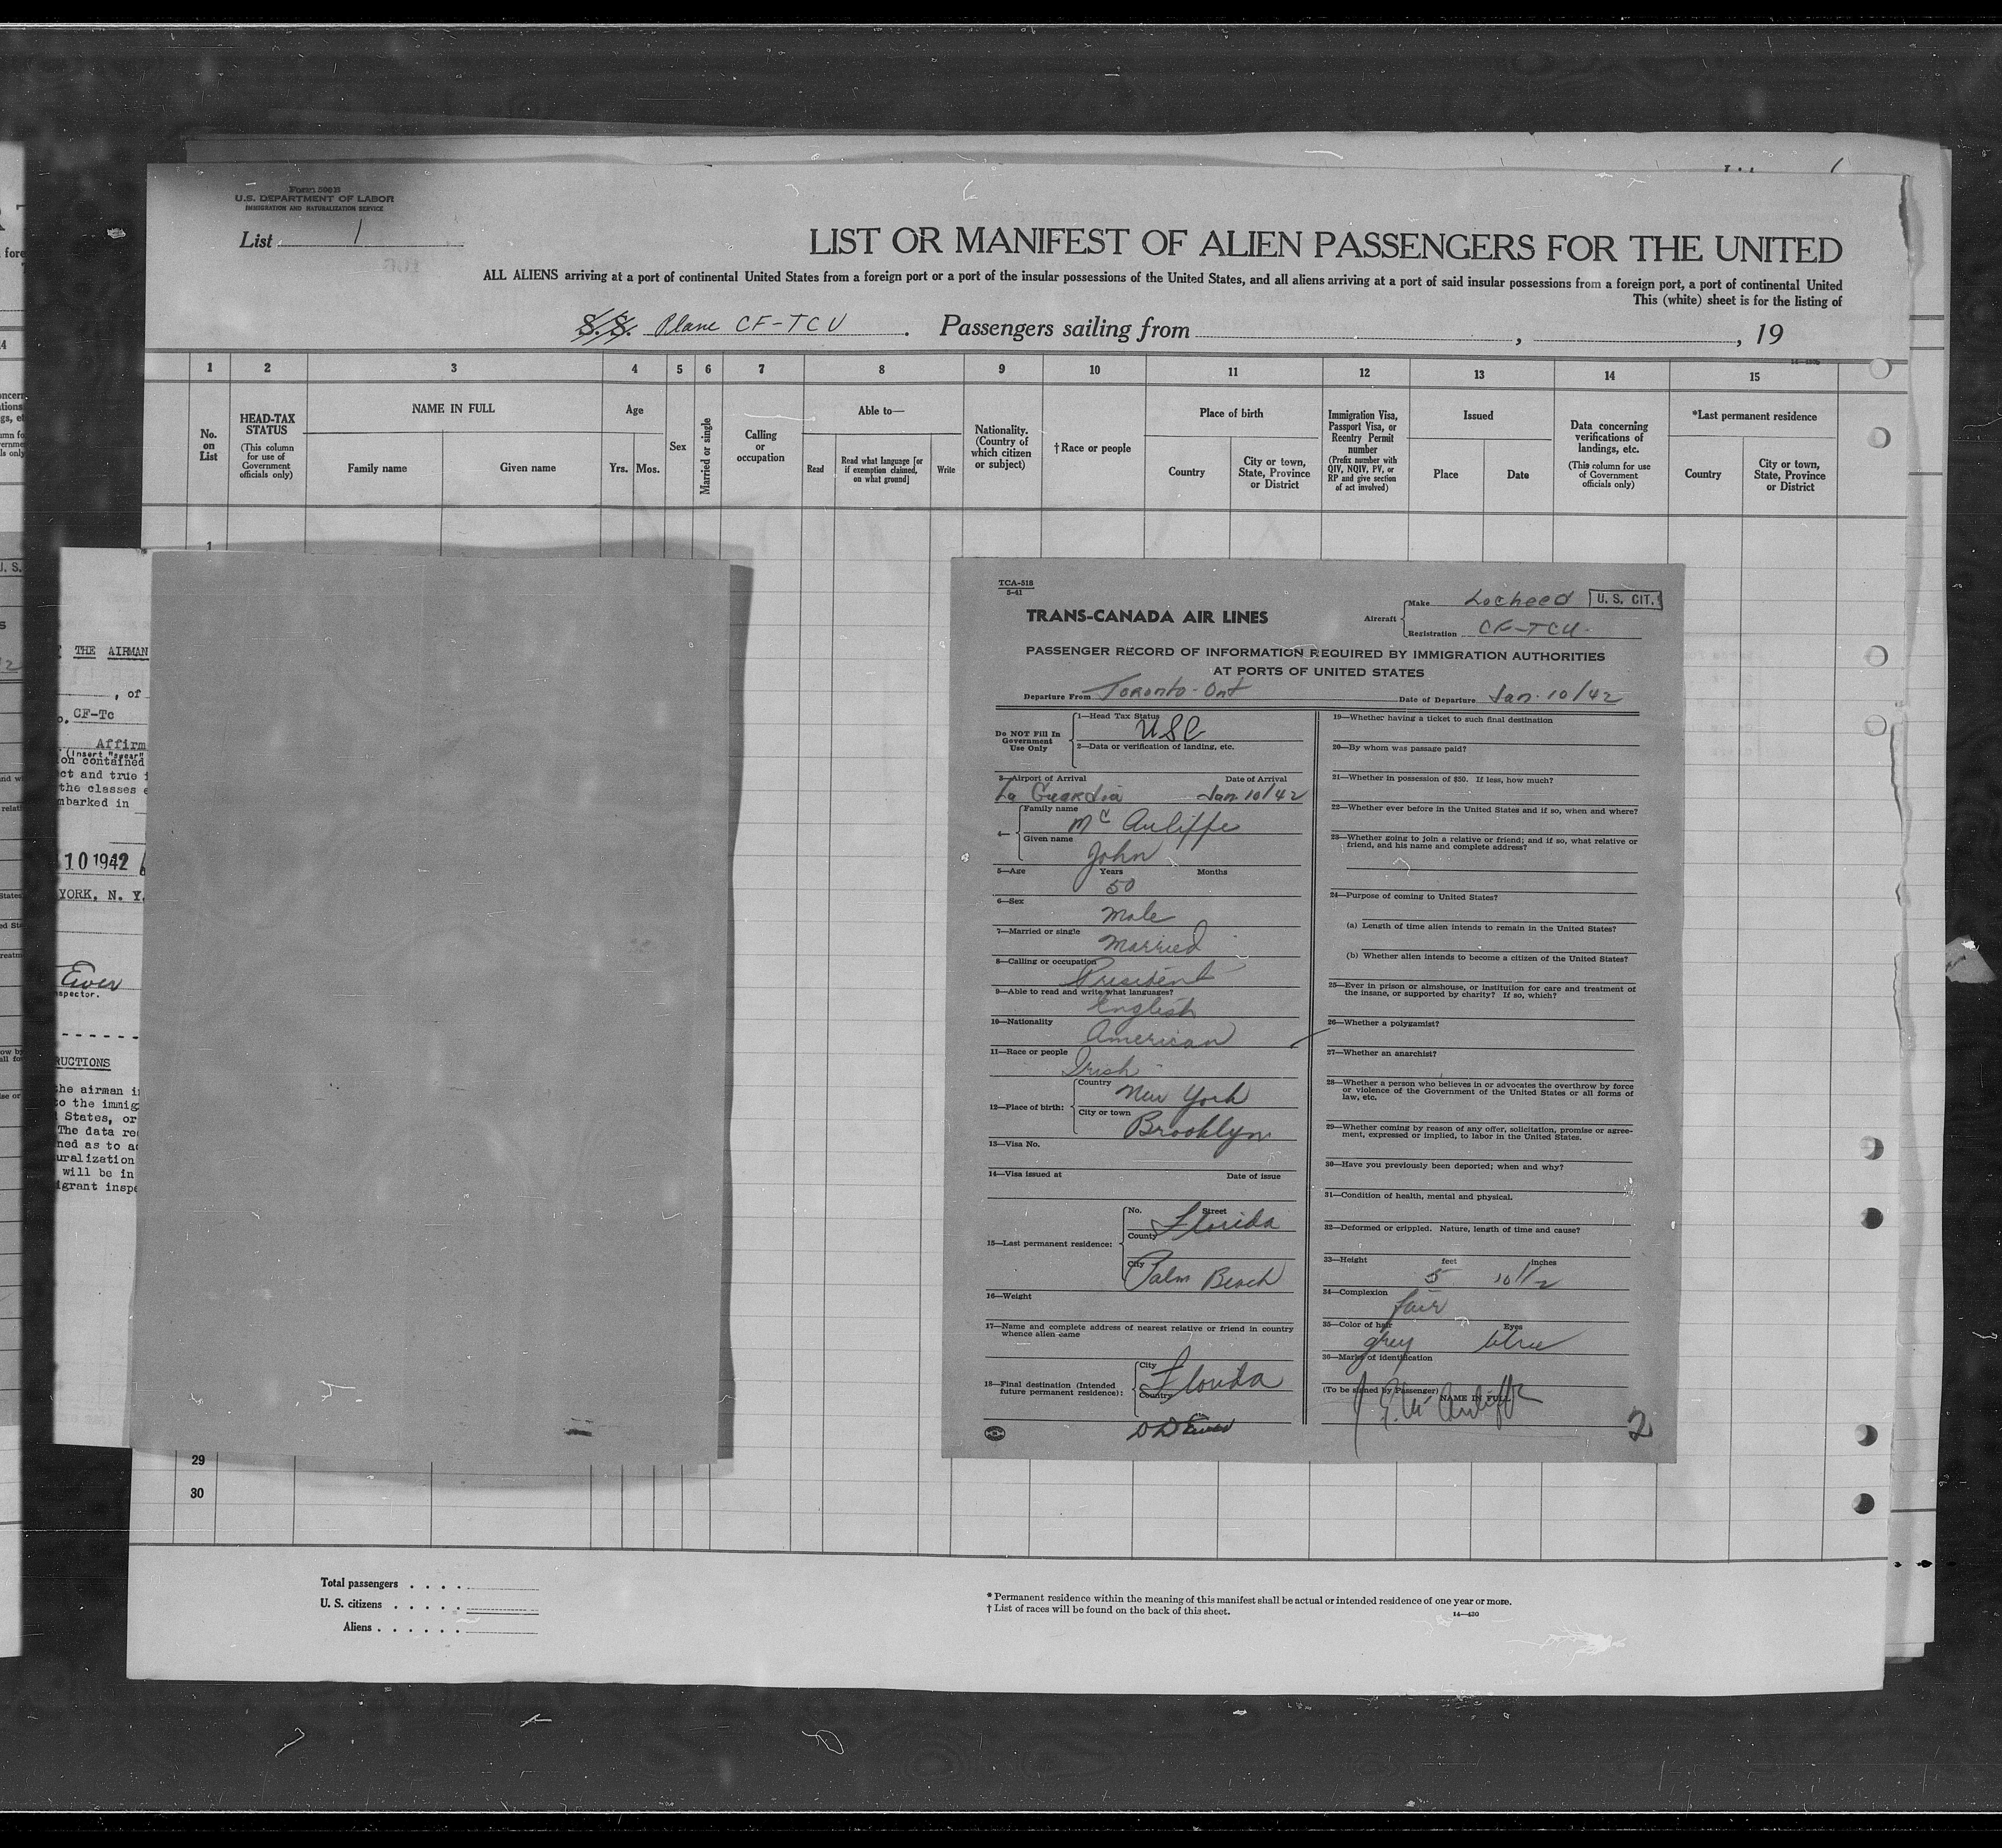 Form 500 B
U.S. DEPARTMENT OF LABOR
IMMIGRATION AND NATURALIZATION SERVICE
List 1
LIST OR MANIFEST OF ALIEN PASSENGERS FOR THE UNITED
ALL ALIENS arriving at a port of continental United States from a foreign port or a port of the insular possessions of the United States, and all aliens arriving at a port of said insular possessions from a foreign port, a port of continental United
This (white) sheet is for the listing of
S. S. Plane CF-TCU . Passengers sailing from , , 19
1 2 3 4 5 6 7 8 9 10 11 12 13 14 15
No. on List
HEAD-TAX STATUS
(This column for use of Government officials only)
NAME IN FULL
Family name Given name
Age
Yrs. Mos.
Sex
Married or single
Calling or occupation
Able to—
Read
Read what language [or if exemption claimed, on what ground]
Write
Nationality. (Country of which citizen or subject)
†Race or people
Place of birth
Country
City or town, State, Province or District
Immigration Visa, Passport Visa, or Reentry Permit number
(Prefix number with QIV, NQIV, PV, or RP and give section of act involved)
Issued
Place Date
Data concerning verifications of landings, etc.
(This column for use of Government officials only)
*Last permanent residence
Country
City or town, State, Province or District
1
THE AIRMAN
, of
CF-Tc
Affirm
(Insert "swear"
on contained
ct and true i
the classes e
mbarked in
10 1942
YORK, N. Y.
Ewer
nspector.
RUCTIONS
he airman i
o the immig
States, or
The data re
ned as to a
uralization
will be in
igrant inspe
TCA-518
5-41
TRANS-CANADA AIR LINES
Aircraft
Make Locheed
U. S. CIT.
Registration CF-TCU
PASSENGER RECORD OF INFORMATION REQUIRED BY IMMIGRATION AUTHORITIES
AT PORTS OF UNITED STATES
Departure From Toronto-Ont Date of Departure Jan. 10/42
Do NOT Fill In
Government
Use Only
1—Head Tax Status
USC
2—Data or verification of landing, etc.
3—Airport of Arrival Date of Arrival
La Guardia Jan 10/42
4— Family name
Mc Auliffe
Given name
John
5—Age Years Months
50
6—Sex
Male
7—Married or single
Married
8—Calling or occupation
President
9—Able to read and write what languages?
English
10—Nationality
American
11—Race or people
Irish
12—Place of birth:
Country
New York
City or town
Brooklyn
13—Visa No.
14—Visa issued at Date of issue
15—Last permanent residence:
No. Street
Florida
County
City
Palm Beach
16—Weight
17—Name and complete address of nearest relative or friend in country
whence alien came
18—Final destination (Intended
future permanent residence):
City
Florida
Country
19—Whether having a ticket to such final destination
20—By whom was passage paid?
21—Whether in possession of $50. If less, how much?
22—Whether ever before in the United States and if so, when and where?
23—Whether going to join a relative or friend; and if so, what relative or
friend, and his name and complete address?
24—Purpose of coming to United States?
(a) Length of time alien intends to remain in the United States?
(b) Whether alien intends to become a citizen of the United States?
25—Ever in prison or almshouse, or institution for care and treatment of
the insane, or supported by charity? If so, which?
26—Whether a polygamist?
27—Whether an anarchist?
28—Whether a person who believes in or advocates the overthrow by force
or violence of the Government of the United States or all forms of
law, etc.
29—Whether coming by reason of any offer, solicitation, promise or agree-
ment, expressed or implied, to labor in the United States.
30—Have you previously been deported; when and why?
31—Condition of health, mental and physical.
32—Deformed or crippled. Nature, length of time and cause?
33—Height feet inches
5 10 1/2
34—Complexion
fair
35—Color of hair Eyes
grey blue
36—Marks of identification
(To be signed by Passenger) NAME IN FULL
J. E. McAuliffe
2
29
30
Total passengers . . . .
U. S. citizens . . . . .
Aliens . . . . . .
* Permanent residence within the meaning of this manifest shall be actual or intended residence of one year or more.
† List of races will be found on the back of this sheet.
14—430